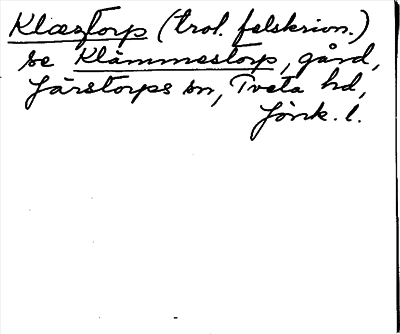 Klæstorp (trol. felskrivn.)
se Klämmestorp, gård,
Järstorps sn, Tveta hd,
Jönk. l.